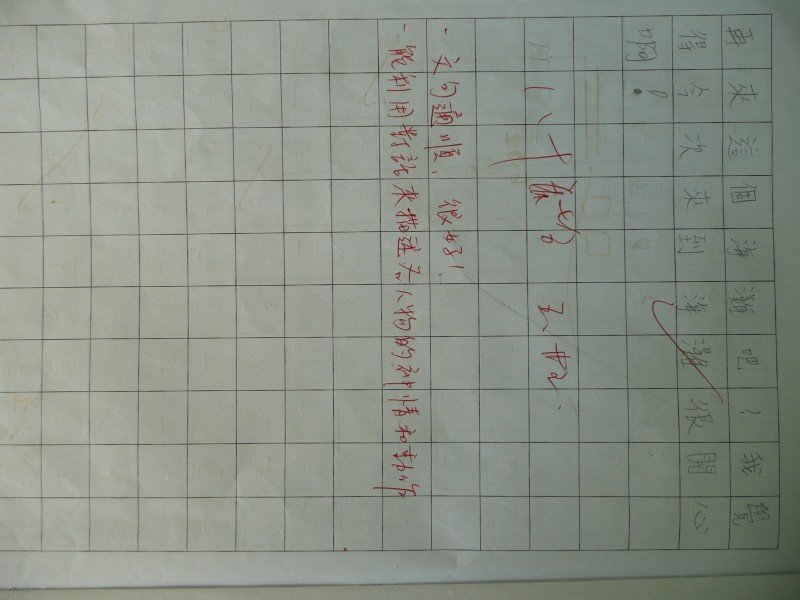 再來這個海灘吧!我覺
得今次來到海灘很開心
啊!
- 文句通順,很好!
- 能利用對話來描述人物的神情和動作